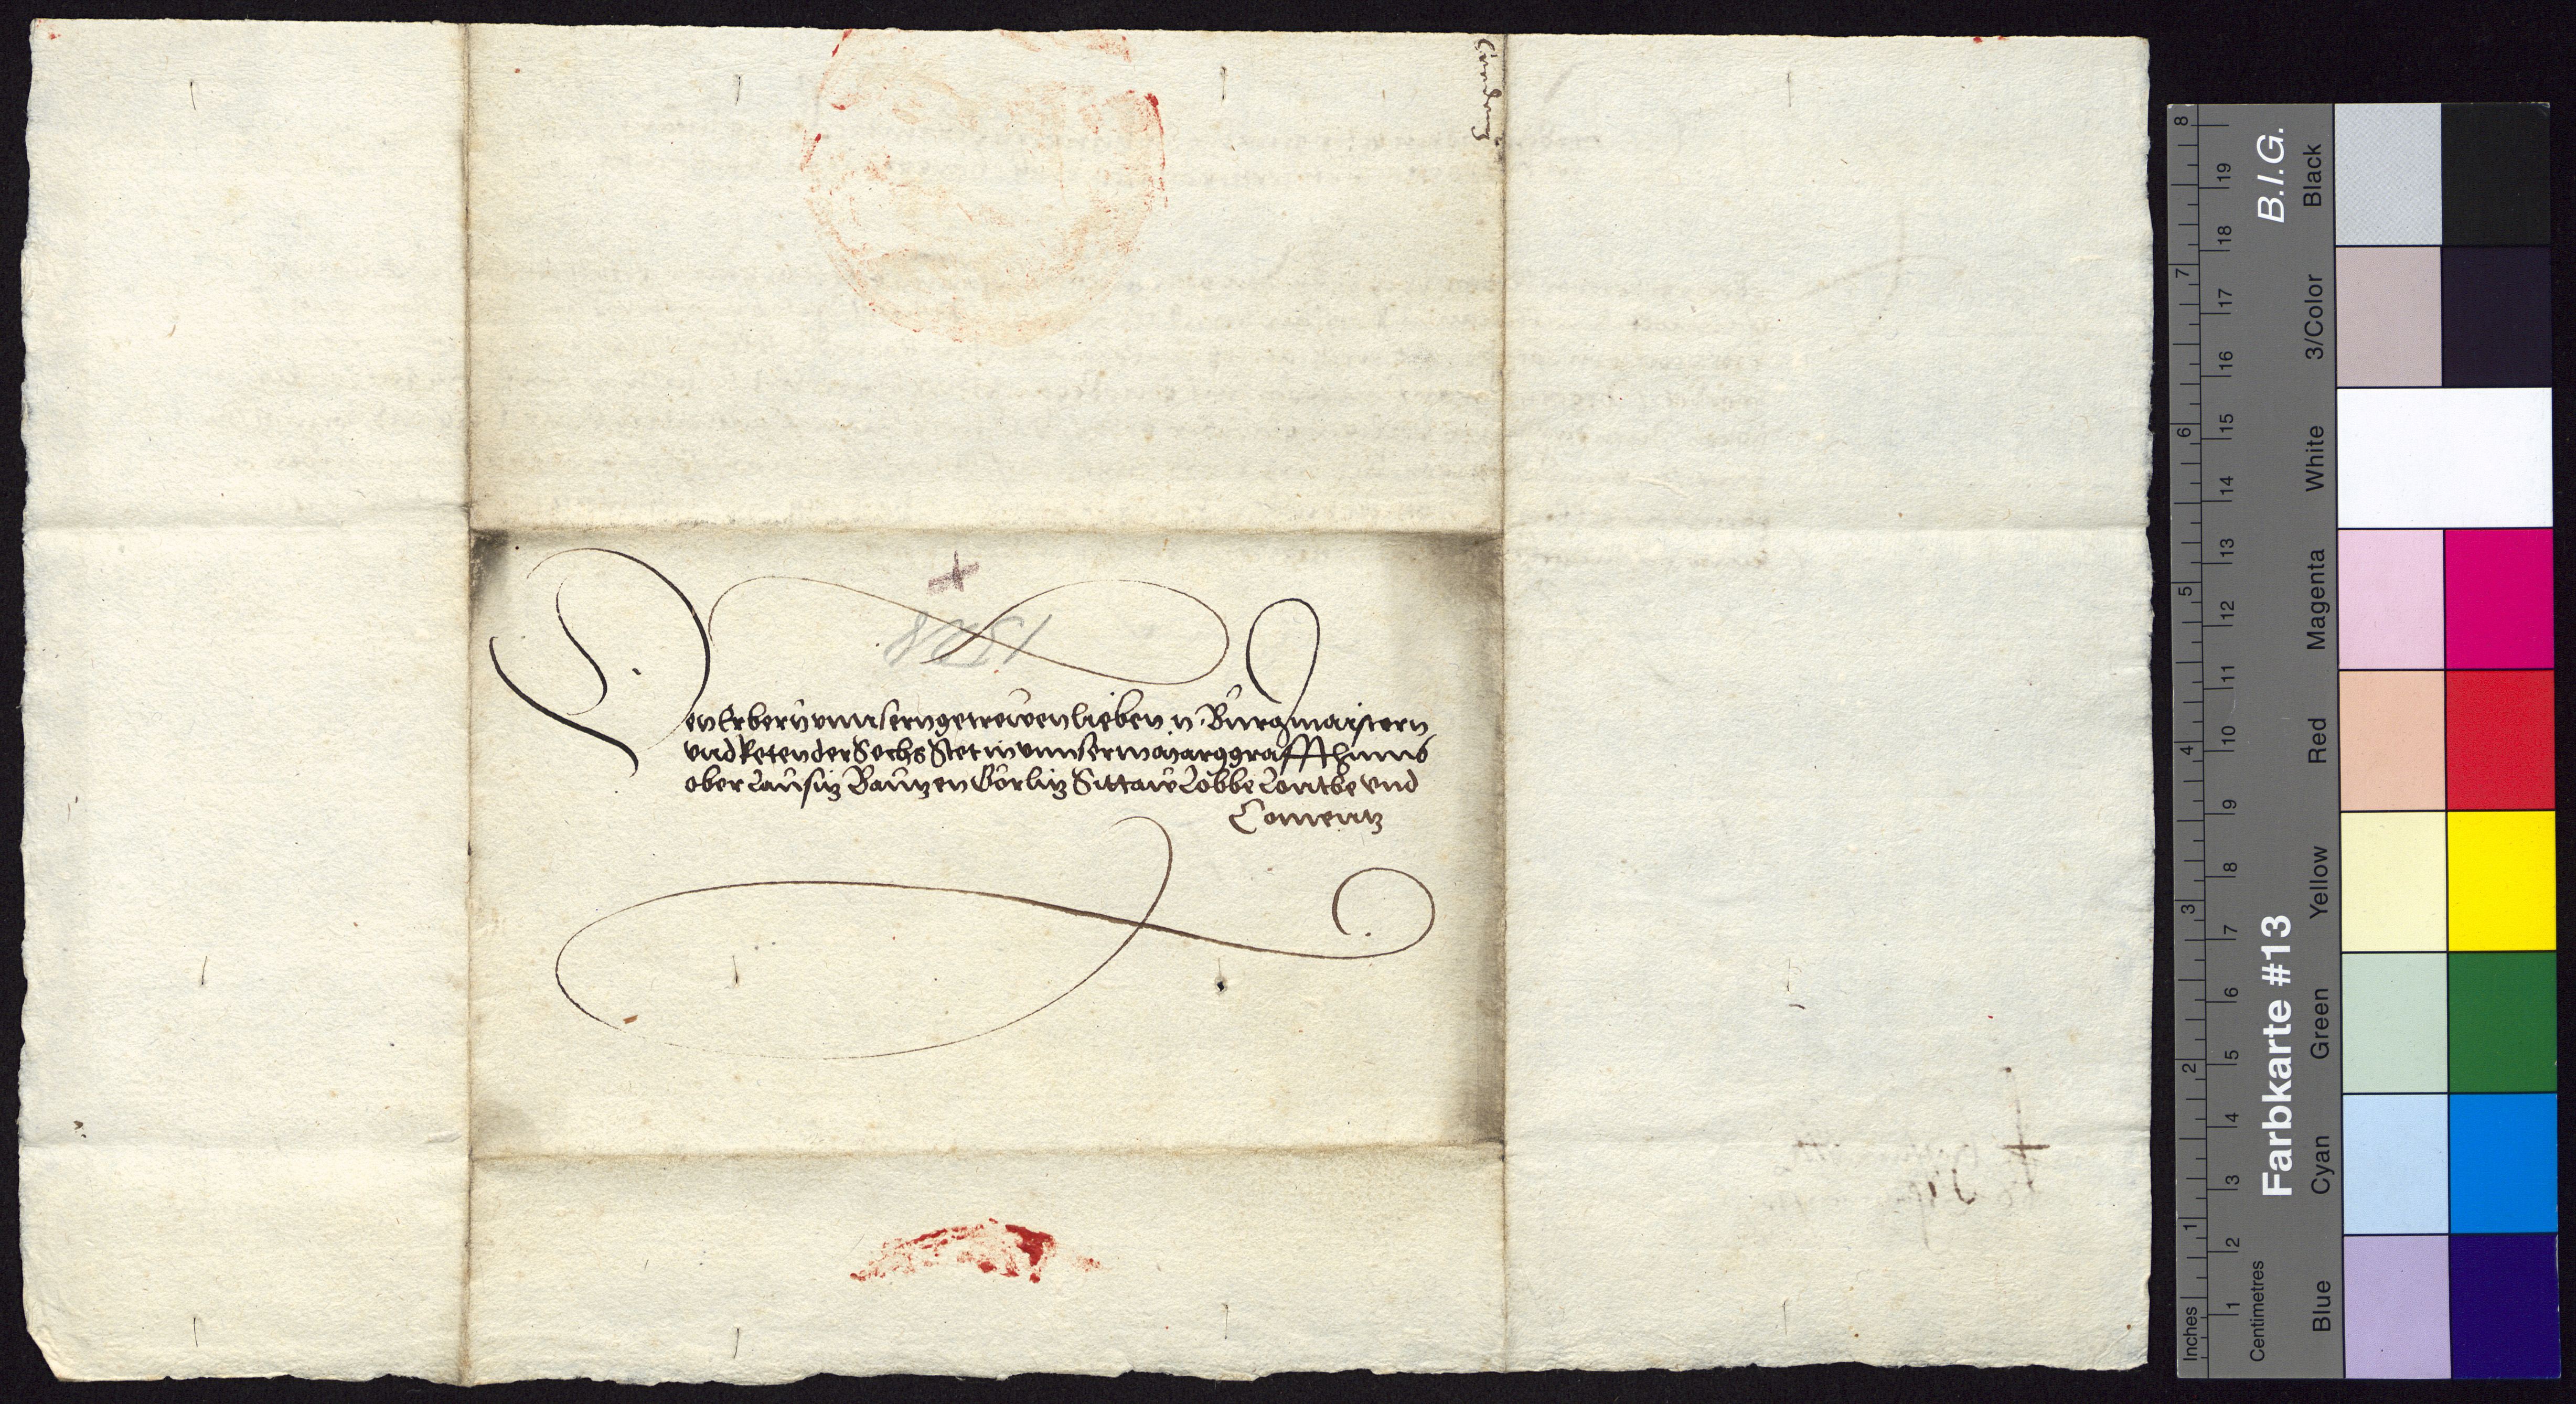 Den Erbern vnnsern getrewen lieben N. Burgmaistern
vnd Reten der Sechs Stet in vnnserm Marggraffthumb
ober Lausitz Bautzen Görlitz Sittaw Löbbe Lontbe vnd
Comentz
1528
B.I.G.
Farbkarte #13
Black
3/Color
White
Magenta
Red
Yellow
Green
Cyan
Blue
Centimetres
19 18 17 16 15 14 13 12 11 10 9 8 7 6 5 4 3 2 1
Inches
8 7 6 5 4 3 2 1